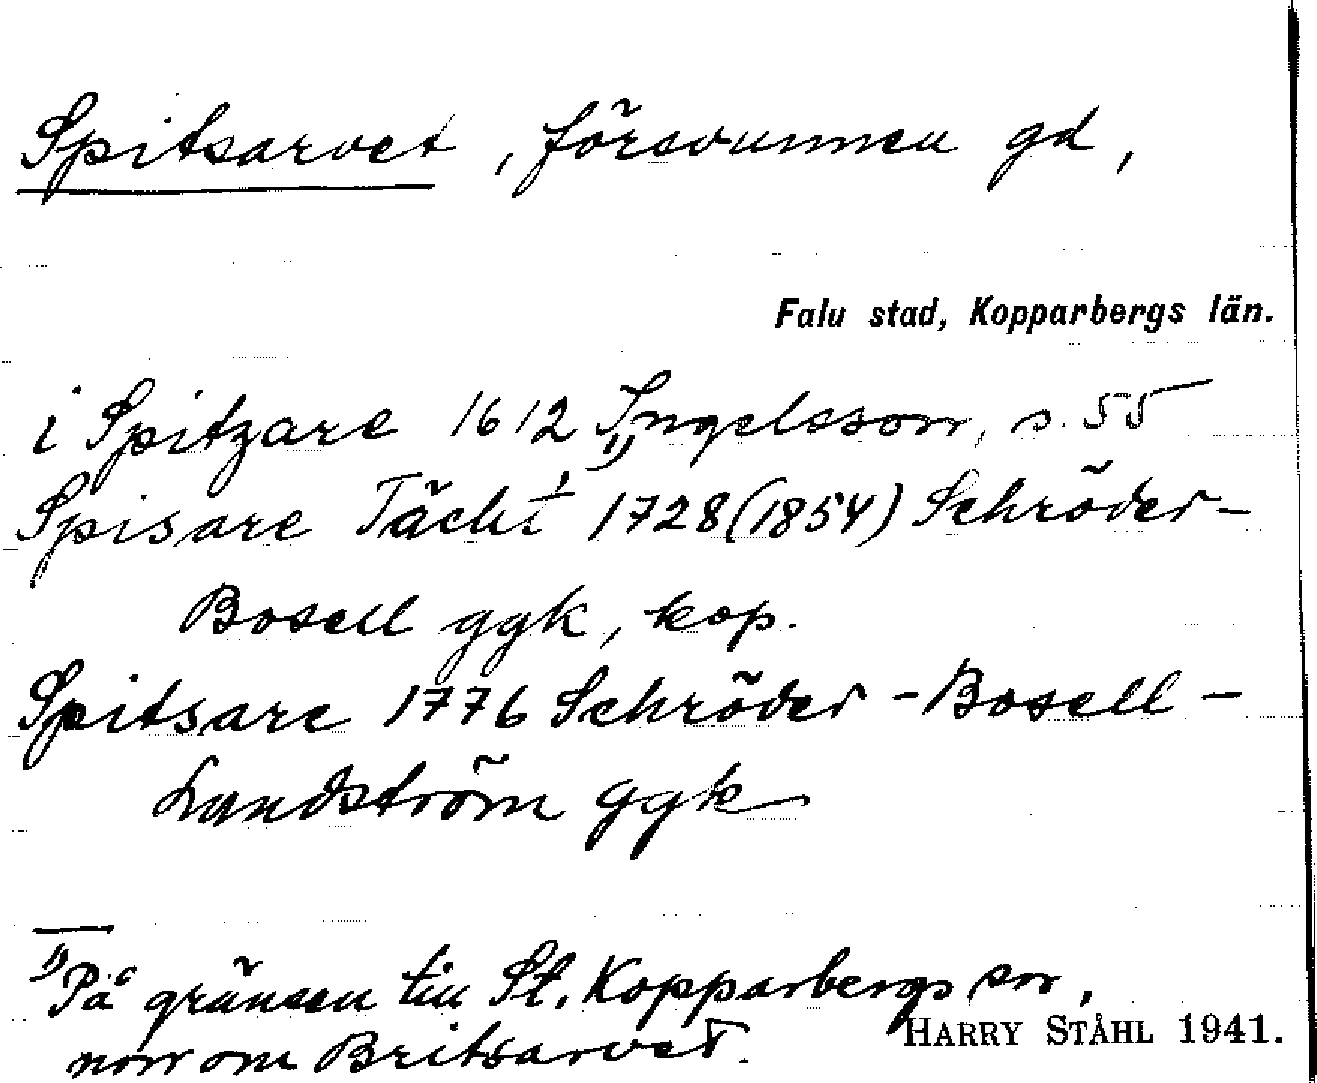 Spitsarvet, försvunnen gd,
Falu stad, Kopparbergs län.
i Spitzare 1612 Ingelsson, s. 55
Spisare Täckt 1) 1728 (1854) Schröder-
Bosell ggk, kop.
Spitsare 1776 Schröder - Bosell -
Lundström ggk
1) På gränsen till St. Kopparbergs sn,
norr om Britsarvet.
HARRY STÅHL 1941.